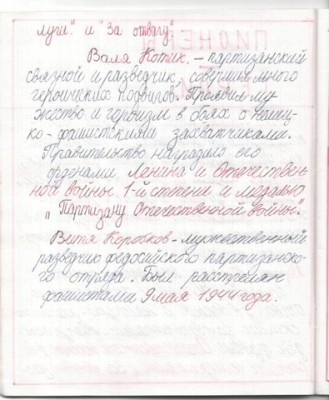 луги". и "За отвагу"
Валя Котик. - партизанский
связной и разведчик, совершил много
героических подвигов. Проявил му
жество и героизм в боях с немец-
ко-фашисткими захватчиками.
Правительство наградило его
орденами Ленина и Отечествен
ной войны 1-й степени и медалью
„Партизану Отечественной войны".
Витя Коробков - мужественный
разведчик федосийского партизанско-
го отряда. Был расстрелян
фашистами 9 мая 1944 года.